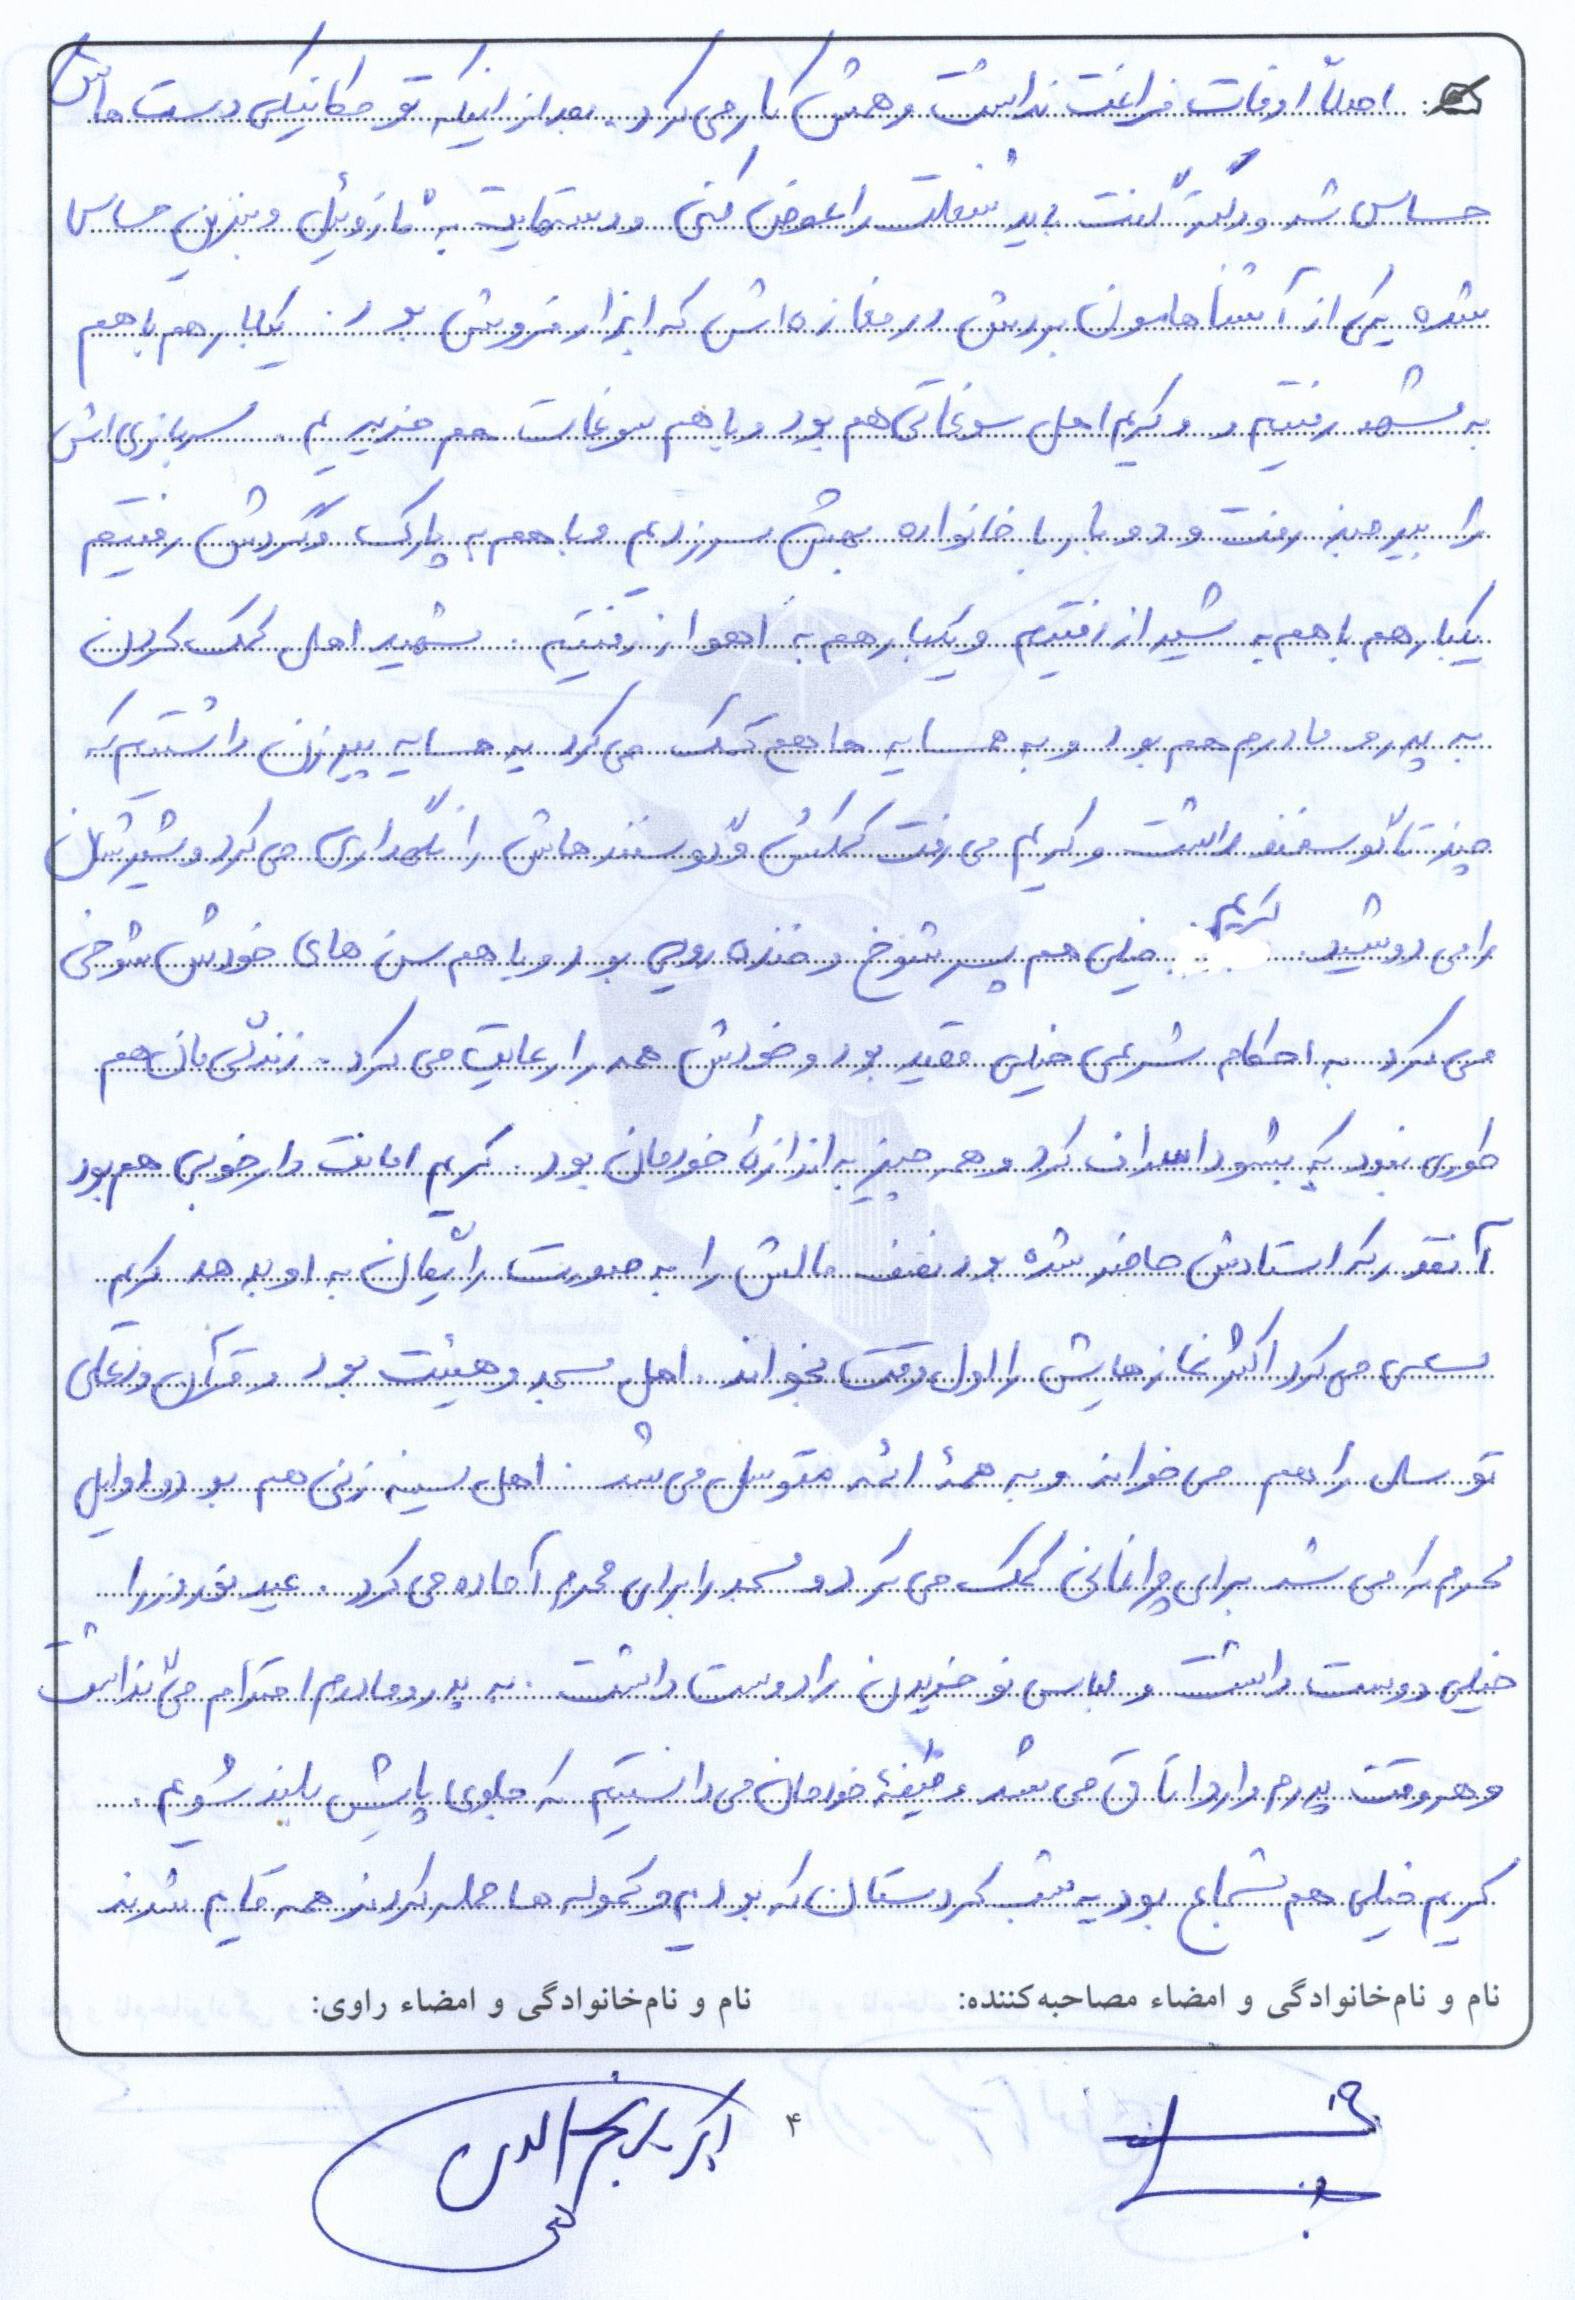 اصلاً اوقات فراغت نداشت و همش کار می کرد. بعد از اینکه تو مکانیکی دست هاش
حساس شد و دکتر گفت باید شغلت را عوض کنی و دستهایت به گازوئیل و بنزین حساس
شده یکی از آشناهامون بردش در مغازه اش که ابزار فروش بود. یکبار هم با هم
به مشهد رفتیم و و کریم اهل سوغاتی هم بود و با هم سوغات هم خریدیم. سربازی اش
را بیرجند رفت و دو بار با خانواده بهش سر زدیم و با هم به پارک و گردش رفتیم
یکبار هم با هم به شیراز رفتیم و یکبار هم به اهواز رفتیم. شهید اهل کمک کردن
به پدر و مادرم هم بود و به همسایه ها هم کمک می کرد یه همسایه پیرزن داشتیم که
چند تا گوسفند داشت و کریم می رفت کمکش و گوسفندهاش را نگهداری می کرد و شیرشان
را می دوشید. کریم خیلی هم پسر شوخ و خنده رویی بود و با هم سن های خودش شوخی
می کرد به احکام شرعی خیلی مقید بود و خودش همه را رعایت می کرد. زندگی مان هم
طوری نبود که بشود اسراف کرد و همه چیز به اندازهٔ خودمان بود. کریم امانت دار خوبی هم بود
آنقدر که استادش حاضر شده بود نصف مالش را به صورت رایگان به او بدهد کریم
سعی می کرد اکثر نمازهایش را اول وقت بخواند. اهل مسجد و هیئت بود و قرآن و دعای
توسل را هم می خواند و به همهٔ ائمه متوسل می شد. اهل سینه زنی هم بود و اوایل
محرم که می شد برای چراغانی کمک می کرد و مسجد را برای محرم آماده می کرد. عید نوروز را
خیلی دوست داشت و لباس نو خریدن را دوست داشت. به پدر و مادرم احترام می گذاشت
و هر وقت پدرم وارد اتاق می شد وظیفهٔ خودمان می دانستیم که جلوی پایش بلند شویم.
کریم خیلی هم شجاع بود یه شب کردستان که بودیم و کموله ها حمله کردند همه قایم شدند
نام و نام‌خانوادگی و امضاء مصاحبه‌کننده:
نام و نام‌خانوادگی و امضاء راوی:
۴